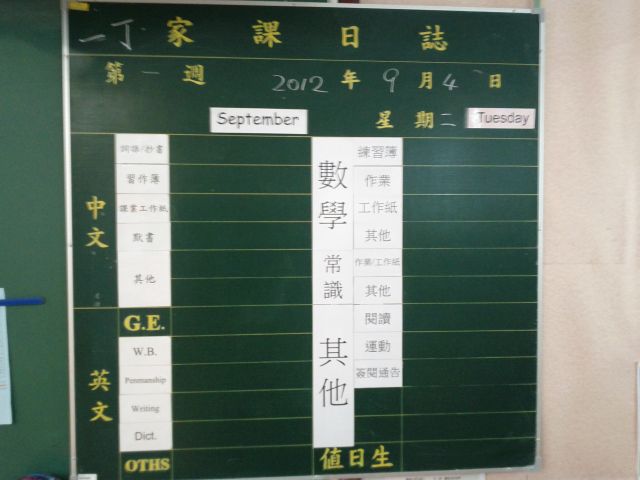 一丁 家課日誌
第一週 2012年9月4日
September 星期二 Tuesday
中文
詞語/抄書
習作簿
課業工作紙
默書
其他
英文
G.E.
W.B.
Penmanship
Writing
Dict.
OTHS
數學
練習簿
作業
工作紙
其他
常識
作業/工作紙
其他
其他
閱讀
運動
簽閱通告
值日生